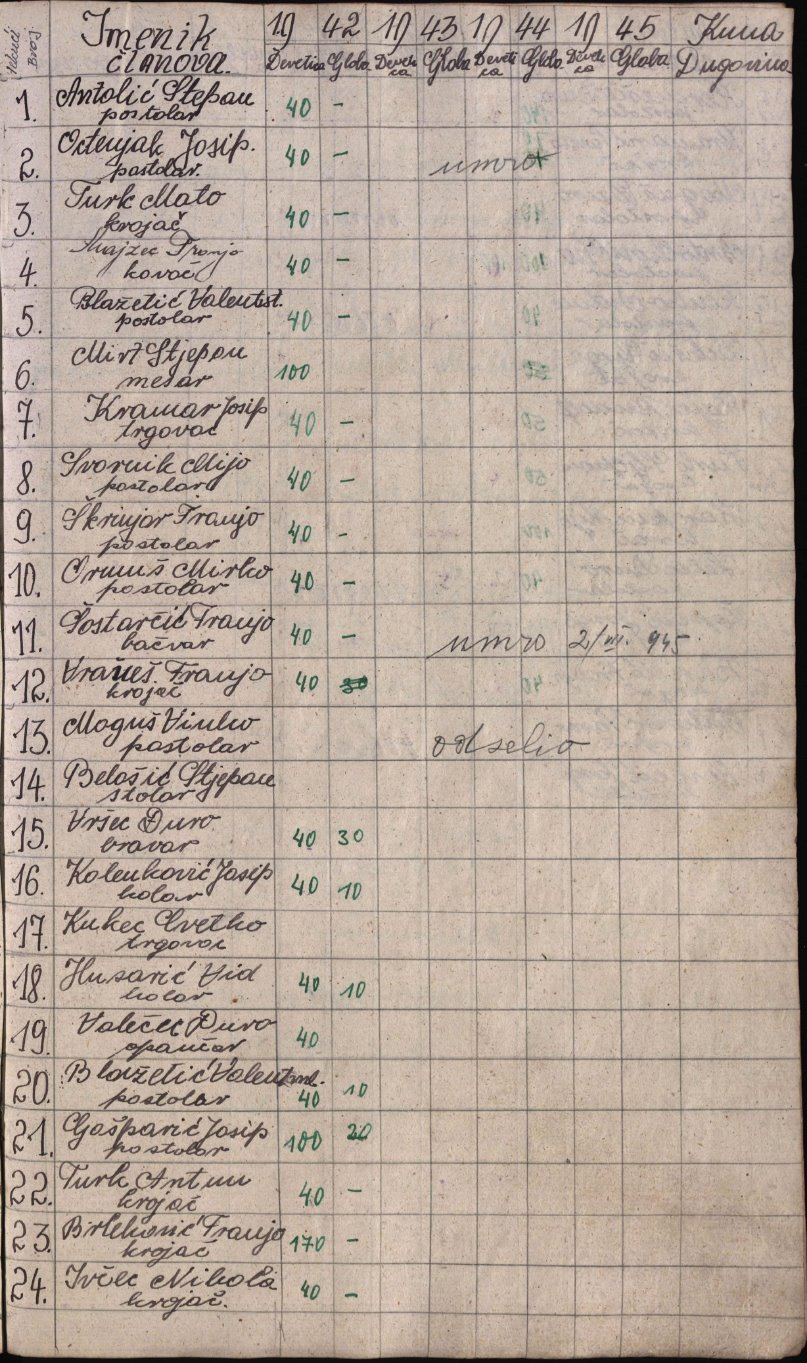 Tekući Broj Imenik članova. 19 42 19 43 19 44 19 45 Kuna
Devetica Globa Devetica Globa Devetica Globa Devetica Globa Dugovina
1. Antolić Stepan 40 -
postolar
2. Josip. 40 - umro
postolar.
3. Turk Mato 40 -
krojač
4. Franjo 40 -
kovač
5. Blažetić Valent st. 40 -
postolar
6. Mirt Stjepan 100
mesar
7. Kramar Josip 40 -
trgovac
8. Svornik Mijo 40 -
postolar
9. Škrinjar Franjo 40 -
postolar
10. Ormuš Mirko 40 -
postolar
11. Šostarčić Franjo 40 - umro 2/VI. 945
bačvar
12. Vraneš Franjo 40 30
krojač
13. Moguš Vinko odselio
postolar
14. Belošić Stjepan
stolar
15. Vršec Đuro 40 30
bravar
16. Kolenković Josip 40 10
kolar
17. Kukec Cvetko
trgovac
18. Husarić Vid 40 10
kolar
19. Valečec Đuro 40
opančar
20. Blažetić Valent ml. 40 10
postolar
21. Gašparić Josip 100 20
postolar
22. Turk Antun 40 -
krojač
23. Brleković Franjo 170 -
krojač
24. Ivčec Nikola 40 -
krojač.